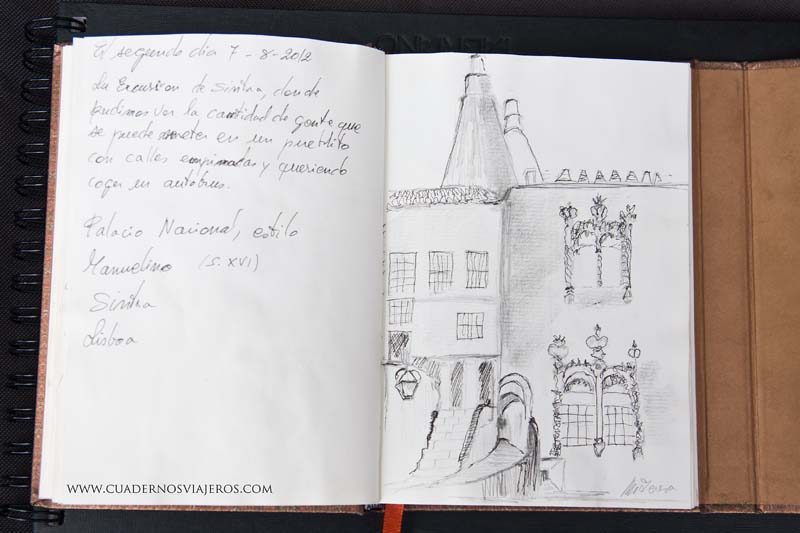 El segundo dia 7-8-2012
La Excursion de Sintra, donde
pudimos ver la cantidad de gente que
se puede meter en un pueblito
con calles empinadas y queriendo
coger un autobus.
Palacio Nacional, estilo
Manuelino (s. XVI)
Sintra
Lisboa
WWW.CUADERNOSVIAJEROS.COM